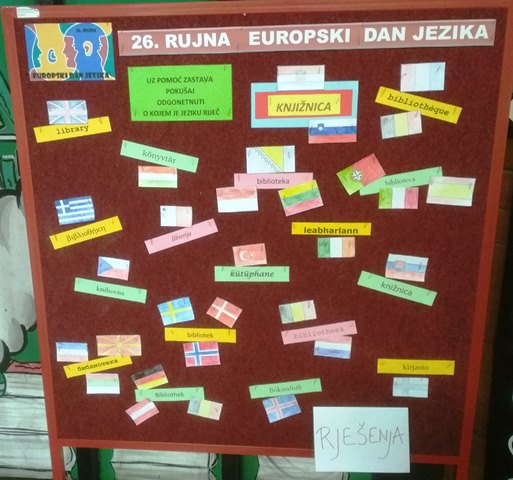 26. RUJNA EUROPSKI DAN JEZIKA
26. RUJNA
EUROPSKI DAN JEZIKA
UZ POMOĆ ZASTAVA
POKUŠAJ
ODGONETNUTI
O KOJEM JE JEZIKU RIJEČ
KNJIŽNICA
bibliothèque
library
könyvtár
biblioteka
biblioteca
βιβλιοθήκη
librerija
leabharlann
kütüphane
knihovna
knižnica
bibliotek
bibliotheek
библиотека
kirjasto
Bibliothek
Bókasafnið
RJEŠENJA